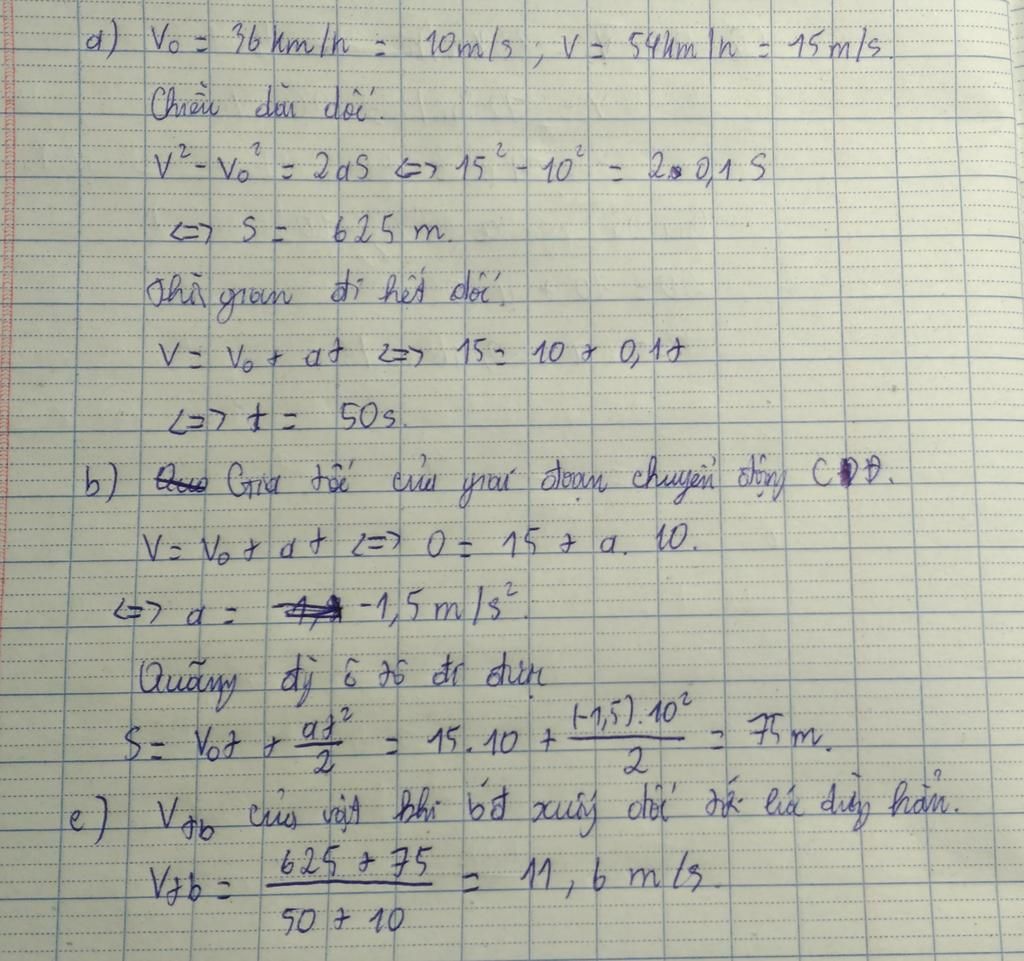 a) V₀ = 36 km/h = 10m/s ; V = 54km/h = 15m/s.
Chiều dài dốc.
V² - V₀² = 2aS <=> 15² - 10² = 2. 0,1. S
<=> S = 625 m.
Thời gian đi hết dốc.
V = V₀ + at <=> 15 = 10 + 0,1t
<=> t = 50s.
b) Gia tốc của giai đoạn chuyển động CDĐ.
V = V₀ + at <=> 0 = 15 + a. 10.
<=> a = -1,5 m/s².
Quãng đg ô tô đi được
S = V₀t + at²/2 = 15.10 + (-1,5).10²/2 = 75m.
c) Vtb của vật khi bđ xuống dốc đến lúc dừng hẳn.
Vtb = 625 + 75 / 50 + 10 = 11,6 m/s.